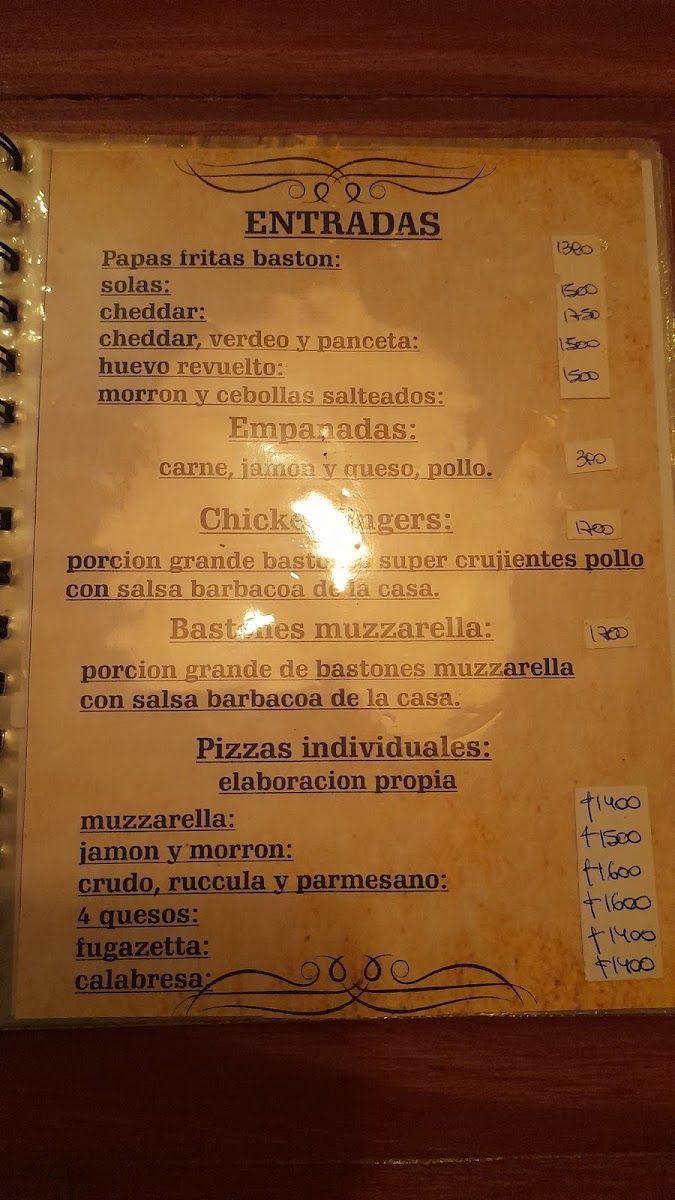 ENTRADAS
Papas fritas baston: 1380
solas: 1500
cheddar: 1750
cheddar, verdeo y panceta: 1500
huevo revuelto: 1500
morron y cebollas salteados:
Empanadas:
carne, jamon y queso, pollo. 380
Chicken fingers: 1700
porcion grande bastones super crujientes pollo
con salsa barbacoa de la casa.
Bastones muzzarella: 1700
porcion grande de bastones muzzarella
con salsa barbacoa de la casa.
Pizzas individuales:
elaboracion propia
muzzarella: $1400
jamon y morron: $1500
crudo, ruccula y parmesano: $1600
4 quesos: $1600
fugazetta: $1400
calabresa: $1400